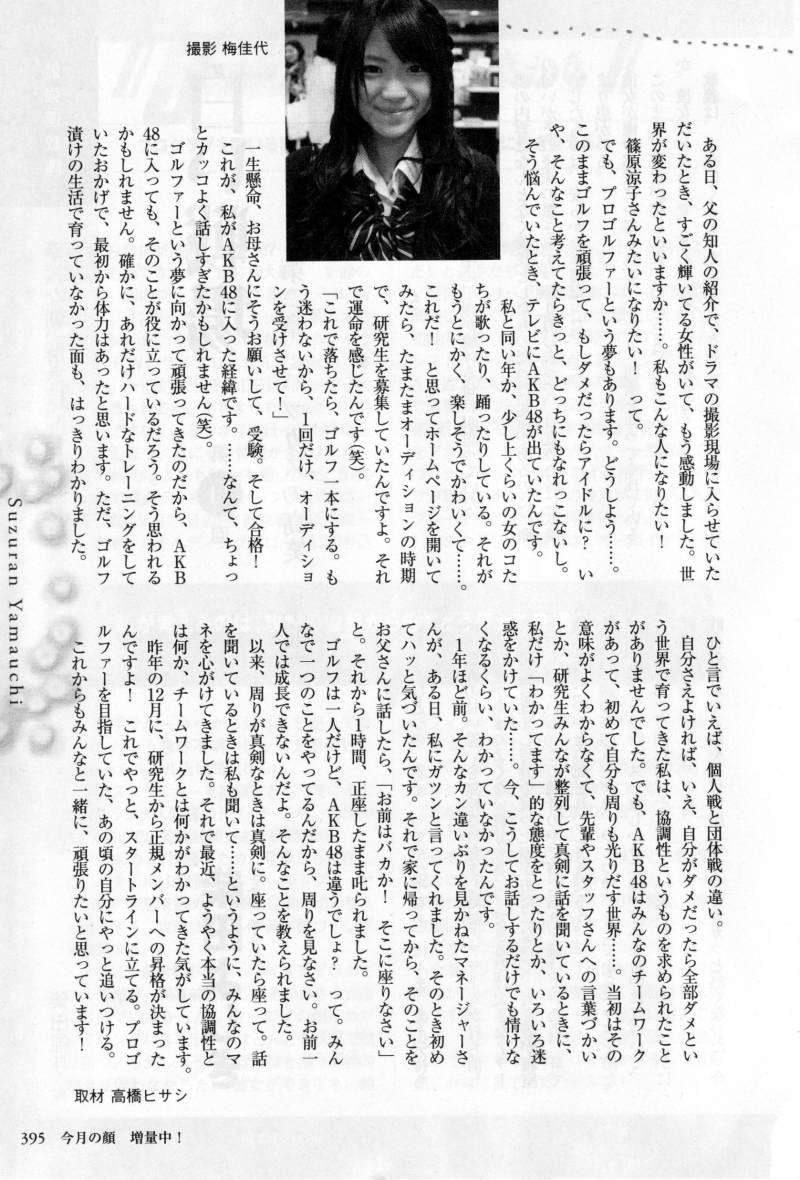 撮影 梅佳代
ある日、父の知人の紹介で、ドラマの撮影現場に入らせていた
だいたとき、すごく輝いてる女性がいて、もう感動しました。世
界が変わったといいますか……。私もこんな人になりたい!
篠原涼子さんみたいになりたい! って。
でも、プロゴルファーという夢もあります。どうしよう……。
このままゴルフを頑張って、もしダメだったらアイドルに? い
や、そんなこと考えてたらきっと、どっちにもなれっこないし。
そう悩んでいたとき、テレビにAKB48が出ていたんです。
私と同い年か、少し上くらいの女のコた
ちが歌ったり、踊ったりしている。それが
もうとにかく、楽しそうでかわいくて……。
これだ! と思ってホームページを開いて
みたら、たまたまオーディションの時期
で、研究生を募集していたんですよ。それ
で運命を感じたんです(笑)。
「これで落ちたら、ゴルフ一本にする。も
う迷わないから、1回だけ、オーディショ
ンを受けさせて!」
一生懸命、お母さんにそうお願いして、受験。そして合格!
これが、私がAKB48に入った経緯です。……なんて、ちょっ
とカッコよく話しすぎたかもしれません(笑)。
ゴルファーという夢に向かって頑張ってきたのだから、AKB
48に入っても、そのことが役に立っているだろう。そう思われる
かもしれません。確かに、あれだけハードなトレーニングをして
いたおかげで、最初から体力はあったと思います。ただ、ゴルフ
漬けの生活で育っていなかった面も、はっきりわかりました。
ひと言でいえば、個人戦と団体戦の違い。
自分さえよければ、いえ、自分がダメだったら全部ダメとい
う世界で育ってきた私は、協調性というものを求められたこと
がありませんでした。でも、AKB48はみんなのチームワーク
があって、初めて自分も周りも光りだす世界……。当初はその
意味がよくわからなくて、先輩やスタッフさんへの言葉づかい
とか、研究生みんなが整列して真剣に話を聞いているときに、
私だけ「わかってます」的な態度をとったりとか、いろいろ迷
惑をかけていた……。今、こうしてお話しするだけでも情けな
くなるくらい、わかっていなかったんです。
1年ほど前。そんなカン違いぶりを見かねたマネージャーさ
んが、ある日、私にガツンと言ってくれました。そのとき初め
てハッと気づいたんです。それで家に帰ってから、そのことを
お父さんに話したら、「お前はバカか! そこに座りなさい」
と。それから1時間、正座したまま叱られました。
ゴルフは一人だけど、AKB48は違うでしょ? って。みん
なで一つのことをやってるんだから、周りを見なさい。お前一
人では成長できないんだよ。そんなことを教えられました。
以来、周りが真剣なときは真剣に。座っていたら座って。話
を聞いているときは私も聞いて……というように、みんなのマ
ネを心がけてきました。それで最近、ようやく本当の協調性と
は何か、チームワークとは何かがわかってきた気がしています。
昨年の12月に、研究生から正規メンバーへの昇格が決まった
んですよ! これでやっと、スタートラインに立てる。プロゴ
ルファーを目指していた、あの頃の自分にやっと追いつける。
これからもみんなと一緒に、頑張りたいと思っています!
取材 高橋ヒサシ
Suzuran Yamauchi
395 今月の顔 増量中!